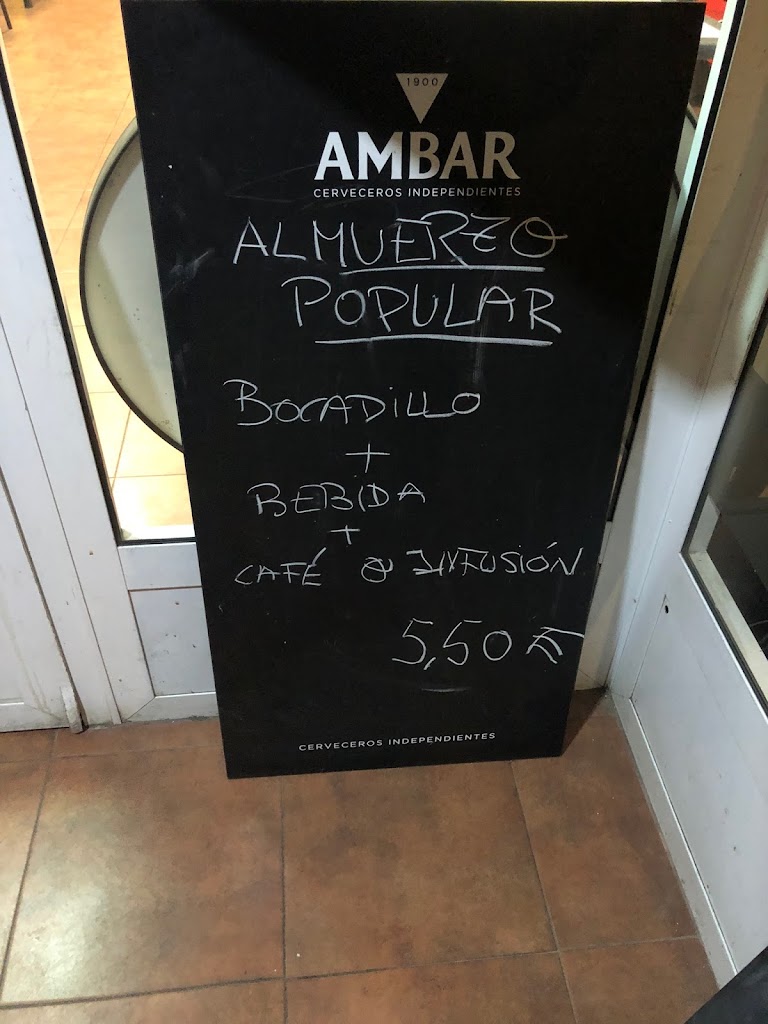 1900
AMBAR
CERVECEROS INDEPENDIENTES
ALMUERZO
POPULAR
BOCADILLO
+
BEBIDA
+
CAFÉ O INFUSIÓN
5,50 €
CERVECEROS INDEPENDIENTES